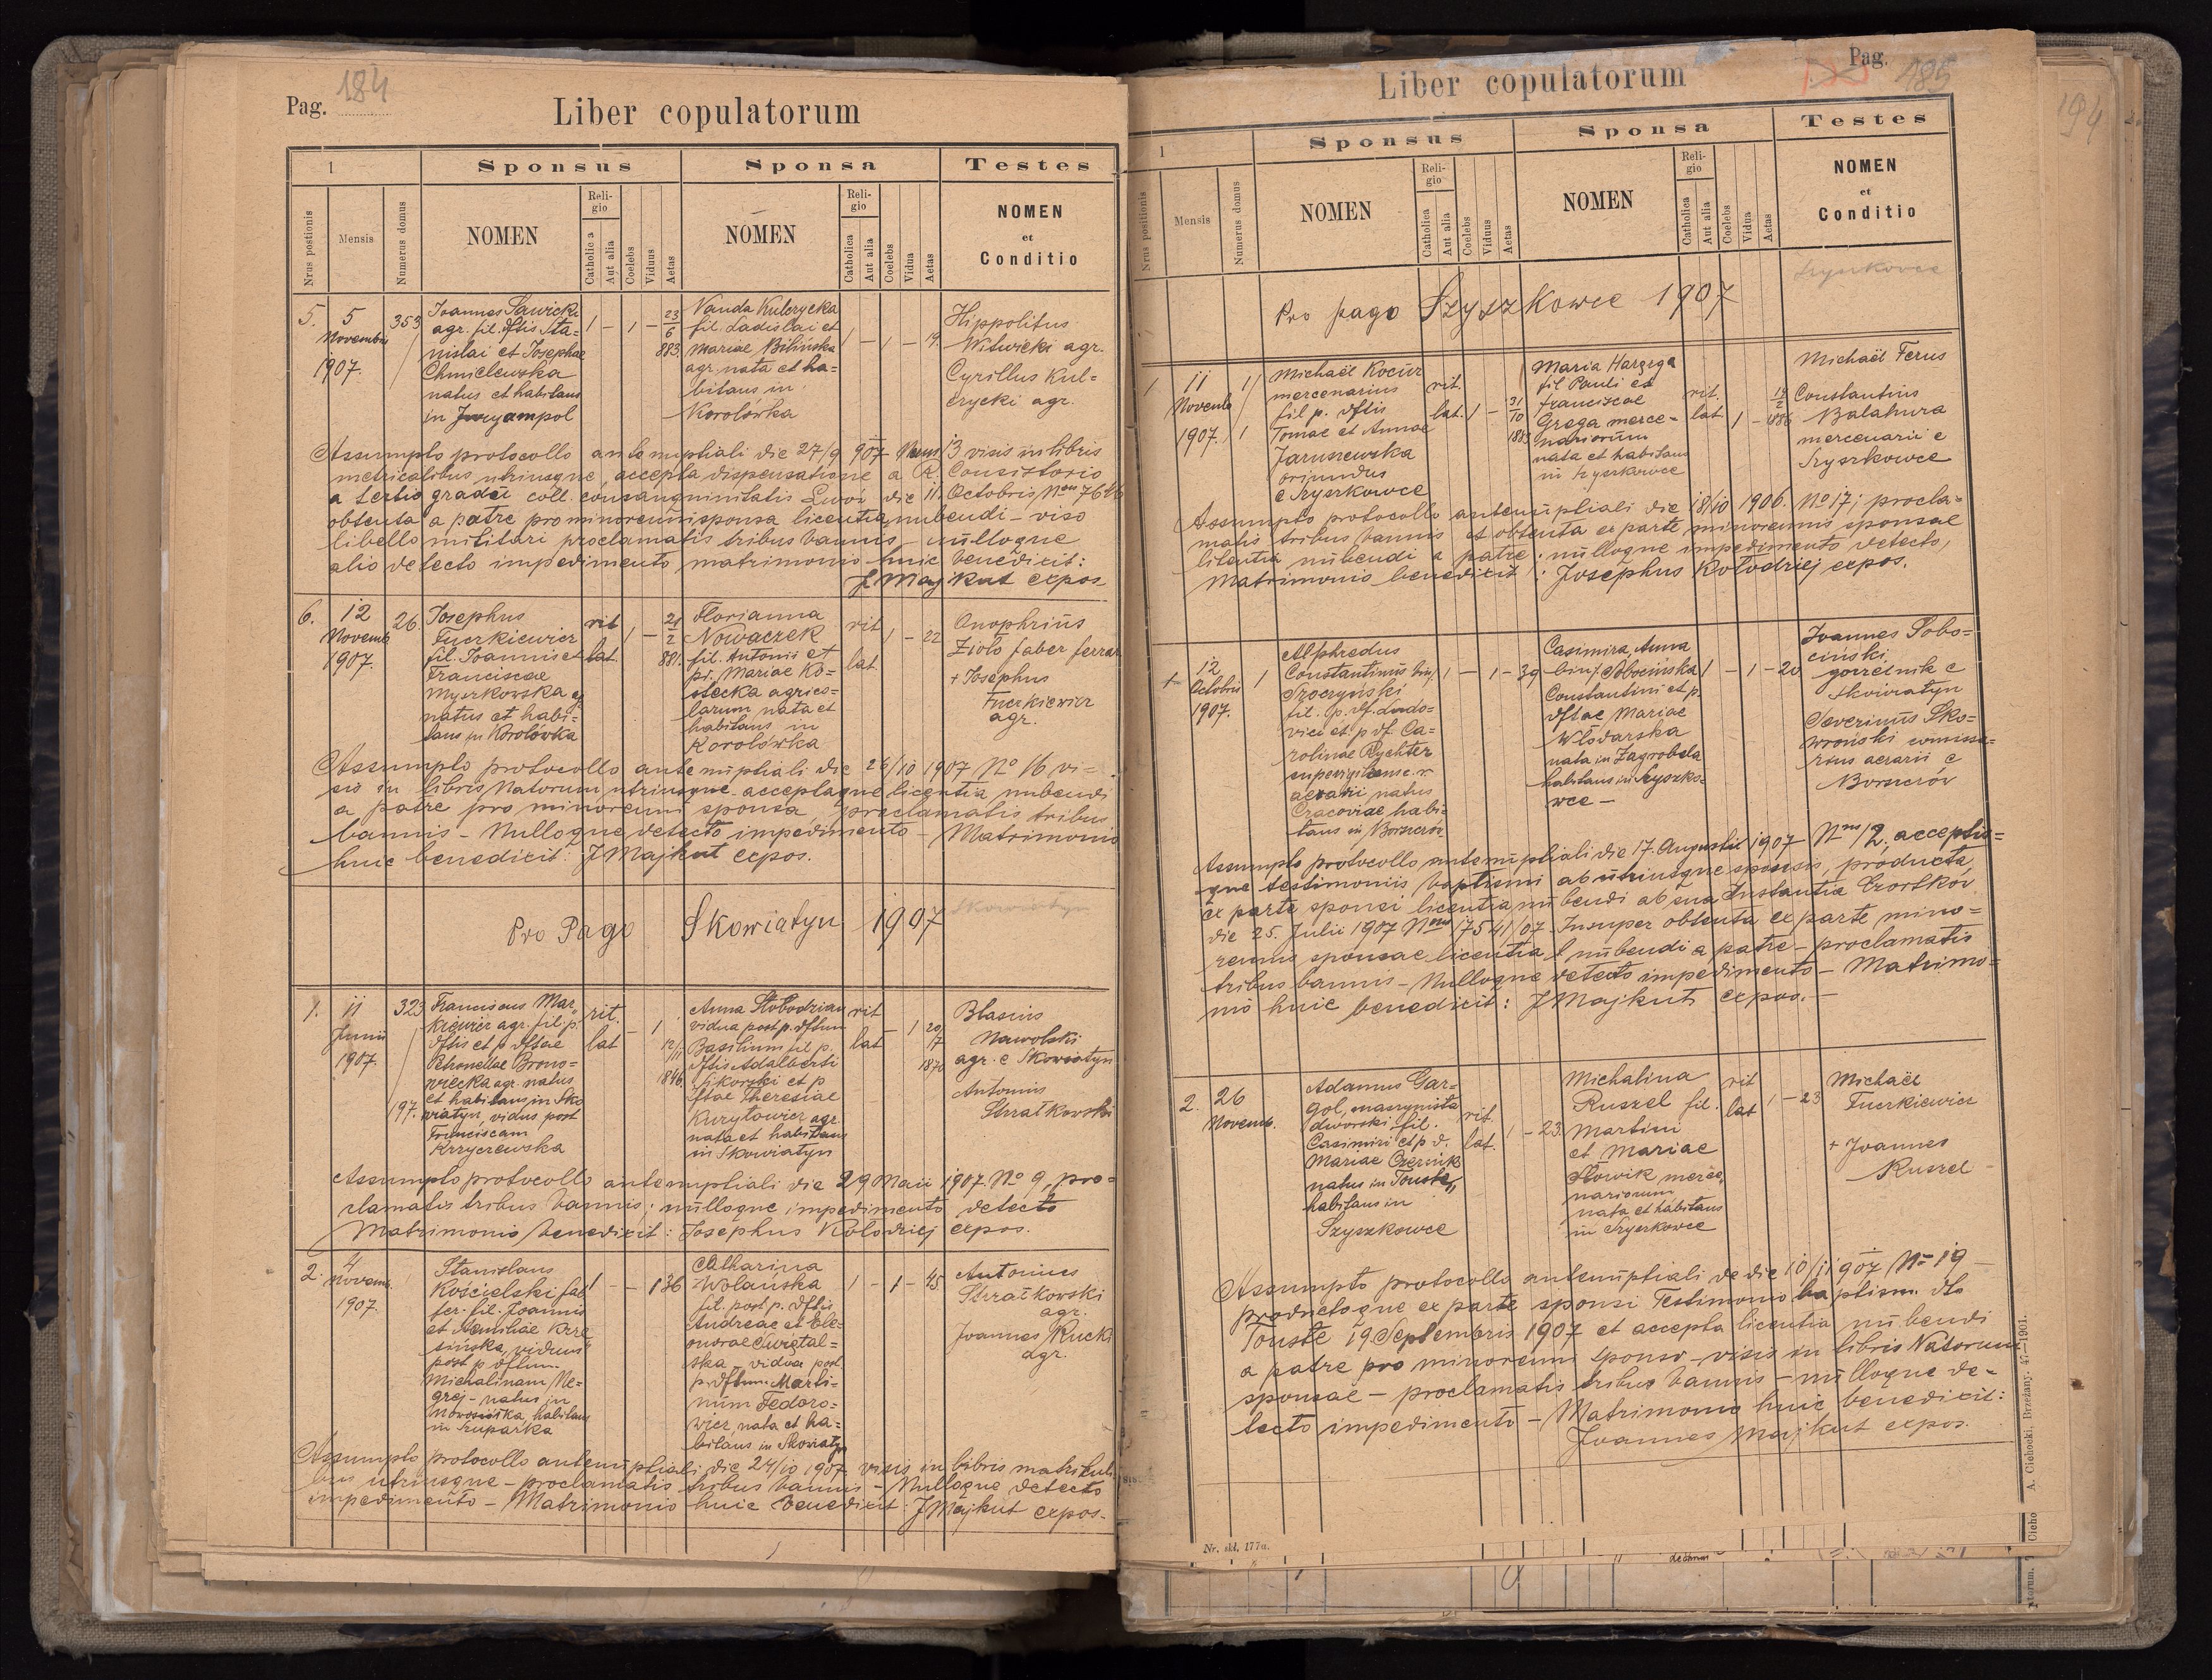 Pag. 184
Liber copulatorum
1
Sponsus
Sponsa
Testes
Nrus postionis
Mensis
Numerus domus
NOMEN
Reli-
gio
Catholica
Aut alia
Coelebs
Viduus
Aetas
NOMEN
Reli-
gio
Catholica
Aut alia
Coelebs
Vidua
Aetas
NOMEN
et
Conditio
5.
5
Novembris
1907.
353
Joannes Sawicki
agr. fil. dftis Sta-
nislai et Josephae
Chmielewska
natus et habitans
in Juryampol
1 – 1 –
23
6
883.
Vanda Kulczycka
fil. Ladislai et
Mariae Bilińska
agr. nata et ha-
bitans in
Korolówka
1 – 1 – 19.
Hippolitus
Witwicki agr.
Cyrillus Kul-
czycki agr.
Assumpto protocollo antenuptiali die 27/9 907 Nrus 13 visis in libris
metricalibus utriusque, accepta dispensatione a R. Consistorio
a tertio gradu coll. consanguinitatis Lwów die 11. Octobris Nru 7646
obtenta a patre pro minorenni sponsa licentia nubendi – viso
libello militari proclamatis tribus bannis – nulloque
alio detecto impedimento, matrimonio huic benedixit:
J. Majkut expos
6.
12
Novemb
1907.
26.
Josephus
Fuczkiewicz
fil. Joannis et
Franciscae
Myszkowska
natus et habi-
tans in Korolówka
rit
lat.
1 –
21
2
881.
Florianna
Nowaczek
fil. Antonii et
Mariae Ko-
stecka agrico-
larum nata et
habitans in
Korolówka
rit
lat.
1 – 22
Onophrius
Zioło faber ferrar
+ Josephus
Fuczkiewicz
agr.
Assumpto protocollo antenuptiali die 26/10 1907 No 16 vi-
sis in libris Natorum utriusque acceptaque licentia nubendi
a patre pro minorenni sponsa proclamatis tribus
bannis – Nulloque detecto impedimento – Matrimonio
huic benedixit: J Majkut expos.
Pro Pago Skowiatyn 1907
Skowiatyn
1.
11
Junii
1907.
323
197.
Franciscus Mar-
kiewicz agr. fil p.
dftis et p dftae
Petronellae Brono-
wiecka agr. natus
et habitans in Sko
wiatyn, vidus post
Franciscam
Krzyczewska
rit.
lat
– 1
12/11
1846.
Anna Słobodzian
vidua post p. dftum
Basilium fil p.
dftis Adalberti
Sikorski et p
dftae Theresiae
Kuryłowicz agr.
nata et habitans
in Skowiatyn
rit
lat
– 1
20
7
1870
Blasius
Nawolski
agr. e Skowiatyn
Antonius
Strzałkowski
Assumpto protocollo antenuptiali die 29 Maii 1907. No 9, pro-
clamatis tribus bannis; nulloque impedimento detecto
Matrimonio benedixit: Josephus Kołodziej expos.
2.
4
Novemb.
1907.
Stanislaus
Kościelski fab
fer. fil. Joannis
et Aemiliae Krze
sińska, viduus
post p dftum.
Michalinam Ne-
grej – natus in
Nowosiółka, habitans
in Euparka
1 – – 1 36
Catharina
Wolańska
fil. post p. dftis
Andreae et Ele-
onorae
ska – vidua post
p. dftum Marti-
num Fedoro-
wicz, nata et ha-
bitans in Skowiatyn
1 – 1 – 45.
Antonius
Strzałkowski
agr.
Joannes Rucki
agr.
Assumpto protocollo antenuptiali die 24/10 1907. visis in libris matrikuli
bus utriusque – proclamatis tribus bannis – Nulloque detecto
impedimento – Matrimonio huic benedixit: J Majkut expos.
Pag. 185
194
Liber copulatorum
1
Sponsus
Sponsa
Testes
Nrus positionis
Mensis
Numerus domus
NOMEN
Reli-
gio
Catholica
Aut alia
Coelebs
Viduus
Aetas
NOMEN
Reli-
gio
Catholica
Aut alia
Coelebs
Vidua
Aetas
NOMEN
et
Conditio
Pro pago Szyszkowce 1907
Szyszkowce
1
11
Novemb
1907.
1
1
Michaël Kocur
mercenarius
fil p. dftis
Tomae et Annae
Jaruszewska
oriundus
e Szyszkowce
rit.
lat.
1 –
31
10
1883
Maria
fil Pauli et
Franciscae
Grega merce-
nariorum
nata et habitans
in Szyszkowce
rit.
lat
1 –
14
2
1886
Michaël Ferus
Constantius
Balahura
mercenarii e
Szyszkowce
Assumpto protocollo antenuptiali die 18/10 1906. No 17; procla-
matis tribus bannis et obtenta ex parte minorennis sponsae
licentia nubendi a patre; nulloque impedimento detecto,
Matrimonio benedixit: Josephus Kołodziej expos.
1.
12
Octobris
1907.
1
Alphredus
Constantinus bin.
Szoczyński
fil. p. df. Ludo-
vici et p df Ca-
rolinae Rychter
aerarii natus
Cracoviae habi-
tans in Borszczów
1 – 1 – 39
Casimira, Anna
bin. Sobocińska
Constantini et p.
dftae Mariae
Włodarska
nata in Zagrobela
habitans in Szyszko-
wce –
1 – 1 – 20
Joannes Sobo-
ciński
gorzelnik e
Skowiatyn
Severinus Sko-
wroński comissa-
rius aerarii e
Borszczów
Assumpto protocollo antenuptiali die 17. Augusti 1907 Nrus 12, acceptis-
que testimoniis baptismi ab utriusque sponsis, producta
ex parte sponsi licentia nubendi ab sua Instantia Czortków
die 25. Julii 1907 Nrus 17541/07. Insuper obtenta ex parte mino-
rennis sponsae licentia nubendi a patre – proclamatis
tribus bannis – Nulloque detecto impedimento – Matrimo-
nio huic benedixit: J Majkut expos. –
2.
26
Novemb.
Adamus Gar-
gol, maszynista
dworski, fil.
Casimiri et p d.
Mariae Czernik
natus in Touste,
habitans in
Szyszkowce
rit.
lat.
1 – 23.
Michalina
Ruszel fil.
Martini
et Mariae
Słowik merce-
nariorum
nata et habitans
in Szyszkowce
rit
lat
1 – 23
Michaël
Fuczkiewicz
+ Joannes
Ruszel
Assumpto protocollo antenuptiali de die 10/11 907 No 19 –
productoque ex parte sponsi Testimonio baptism. dto
Touste 19 Septembris 1907 et accepta licentia nubendi
a patre pro minorenni sponso – visis in libris Natorum
sponsae – proclamatis tribus bannis – nulloque de-
tecto impedimento – Matrimonio huic benedixit:
Joannes Majkut expos.
Nr. skł. 177a.
A. Ciehocki. Brzeżany. 47—1901.